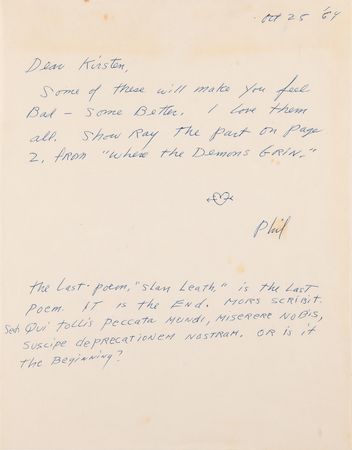 Oct 25 '64
Dear Kirsten,
Some of these will make you feel
Bad – some Better. I love them
all. Show Ray the part on page
2, from "Where the Demons Grin."
Phil
the Last poem, "Slan Leath," is the Last
Poem. IT is the End. MORS SCRIBIT.
Sed: Qui tollis peccata mundi, miserere nobis,
suscipe deprecationem nostram. OR is it
the Beginning?